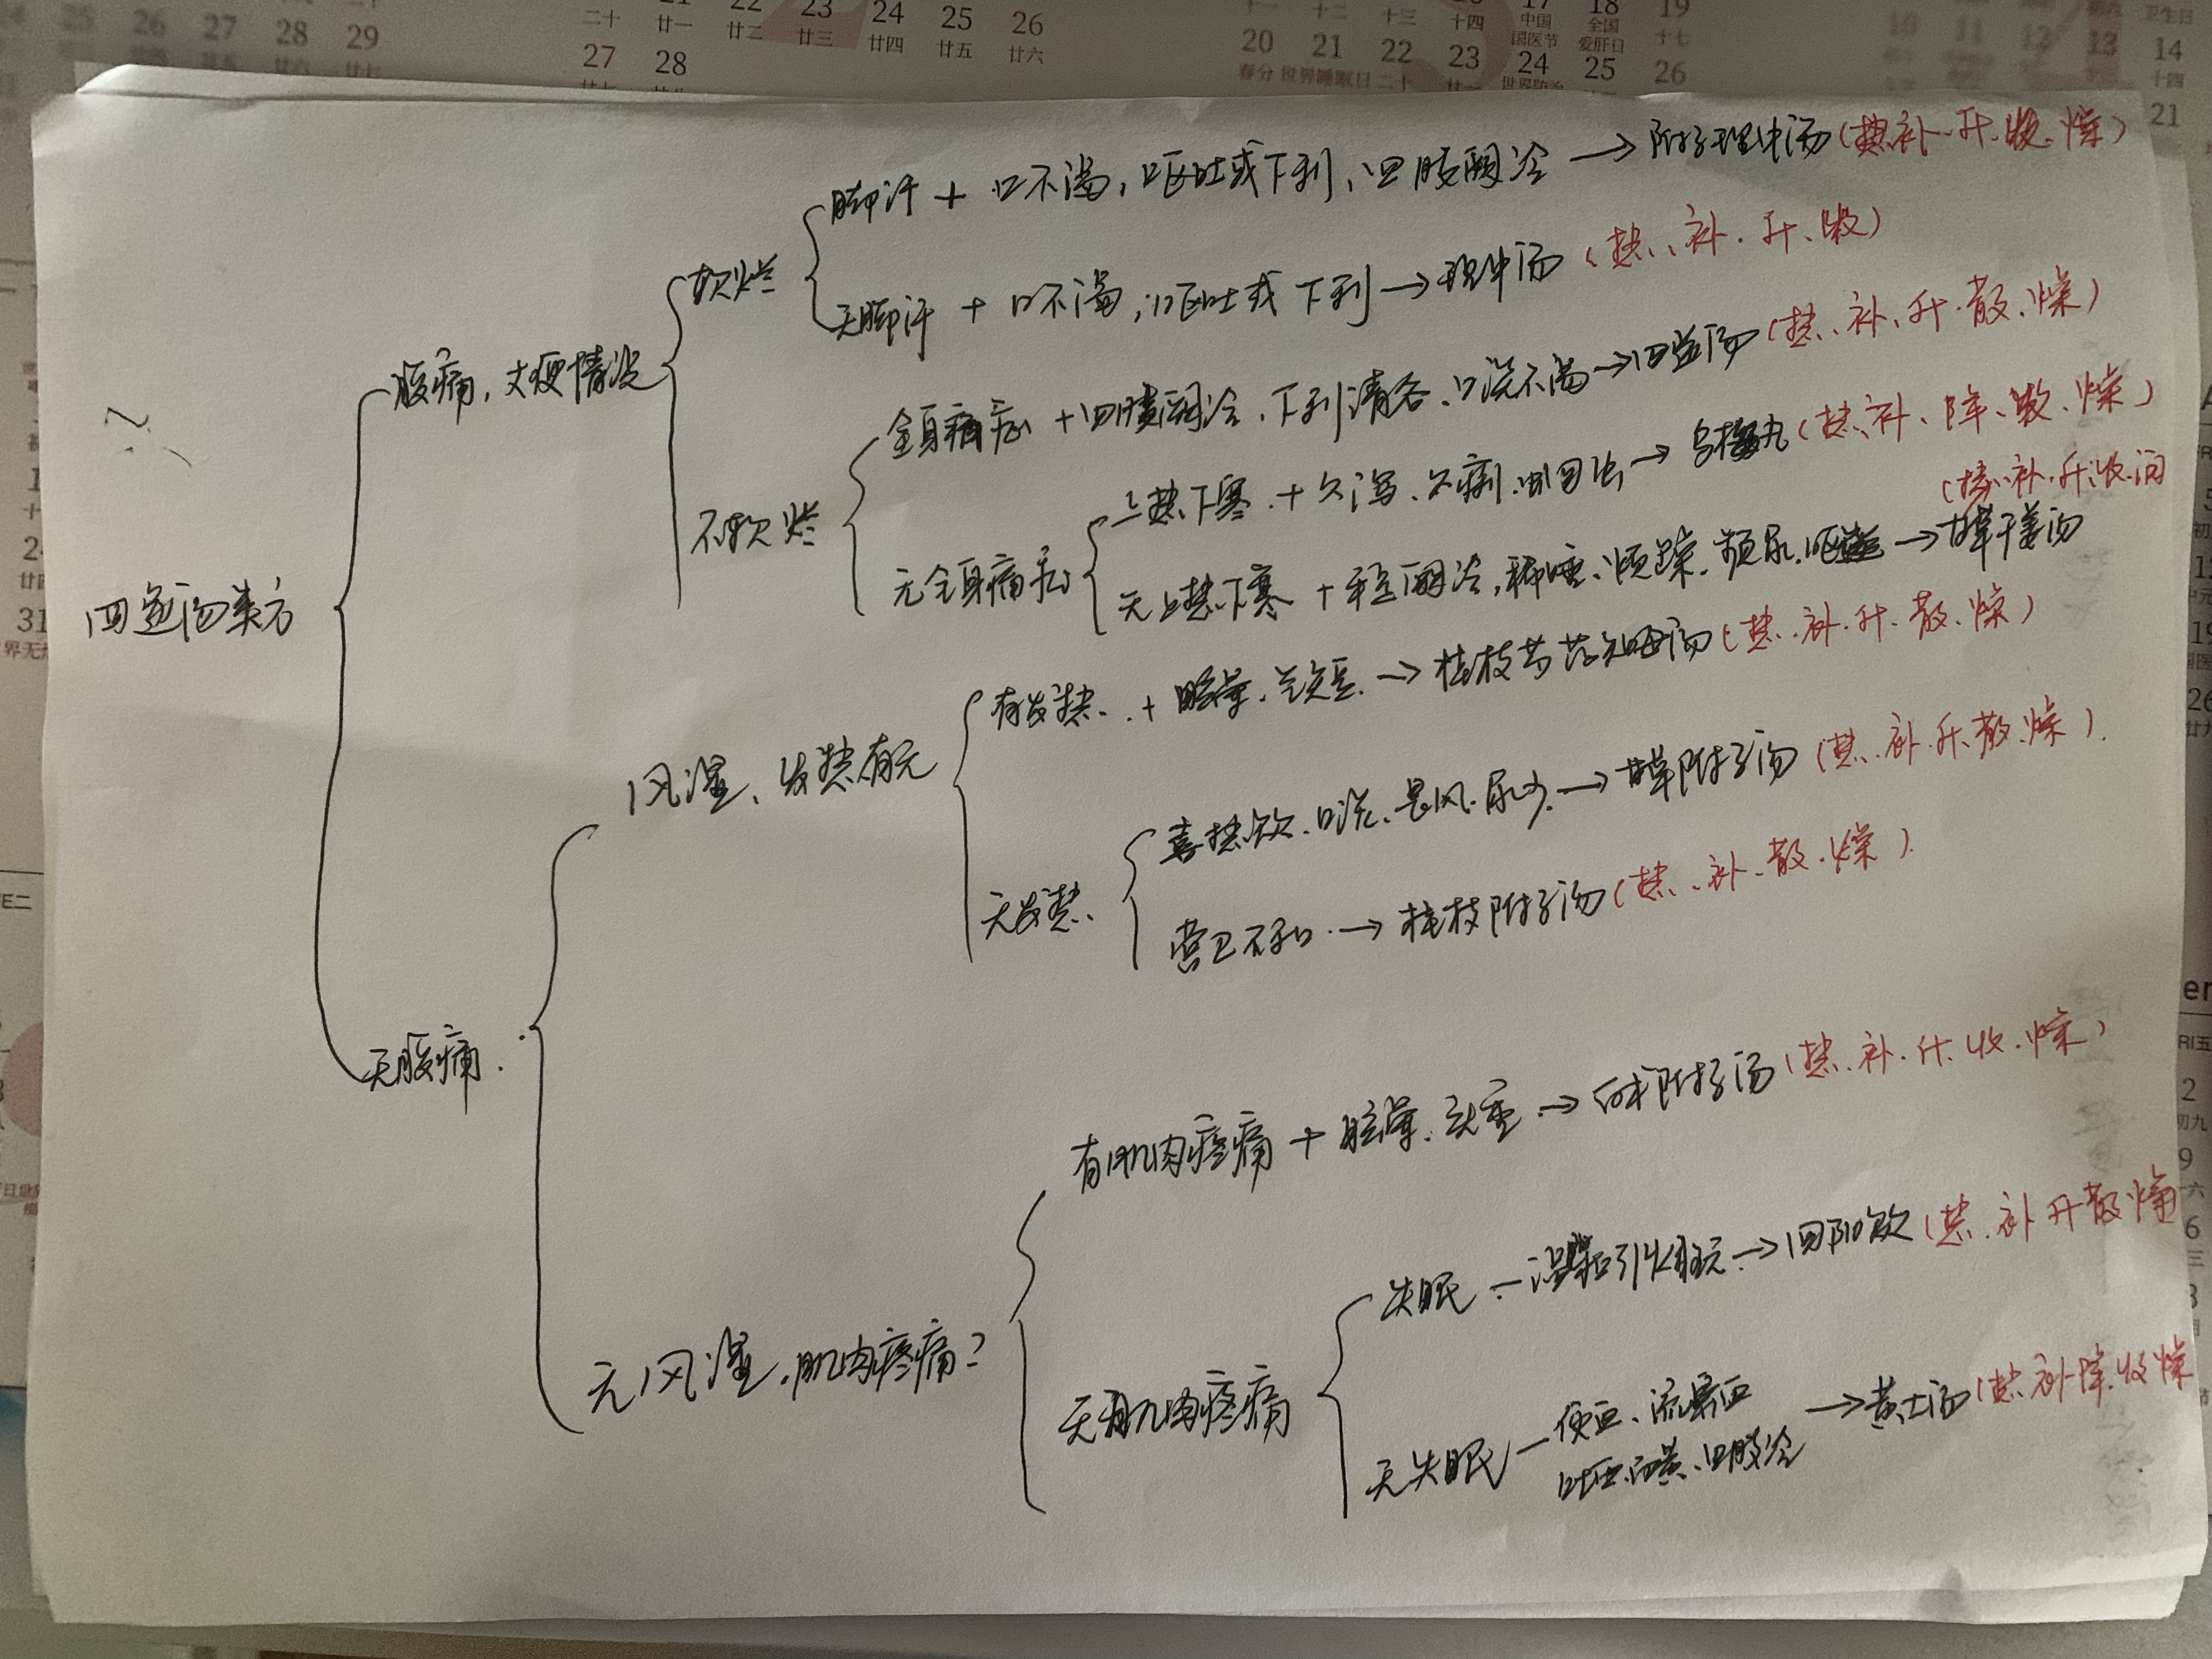 四逆汤类方
腹痛，大便情况
软烂
脚汗 + 口不渴，呕吐或下利，四肢厥冷 → 附子理中汤（热、补、升、收、燥）
无脚汗 + 口不渴，呕吐或下利 → 理中汤（热、补、升、收）
不软烂
全身痛 + 四肢厥冷、下利清谷、口淡不渴 → 四逆汤（热、补、升、散、燥）
无全身痛
上热下寒 + 久泻、久痢、蛔虫 → 乌梅丸（热、补、降、散、燥）
无上热下寒 + 厥冷，烦躁、频尿、→ 甘草干姜汤
（热、补、升、收、润
无腹痛
风湿、发热有无
有发热 + 眩晕、气短 → 桂枝芍药知母汤（热、补、升、散、燥）
无发热
喜热饮、口淡、恶风、尿少 → 甘草附子汤（热、补、升、散、燥）
营卫不和 → 桂枝附子汤（热、补、散、燥）
无风湿，肌肉疼痛？
有肌肉疼痛 + 眩晕、头重 → 白术附子汤（热、补、升、收、燥）
无肌肉疼痛
失眠 — 引火归元 → 回阳饮（热、补 升 散 燥
无失眠 — 便血、流鼻血
吐血、面黄、四肢冷 → 黄土汤（热、补 降、收 燥
20
21
22
23
24
25
26
27
28
29
春分
世界睡眠日
中国
国医节
全国
爱肝日
廿一
廿二
廿三
廿四
廿五
廿六